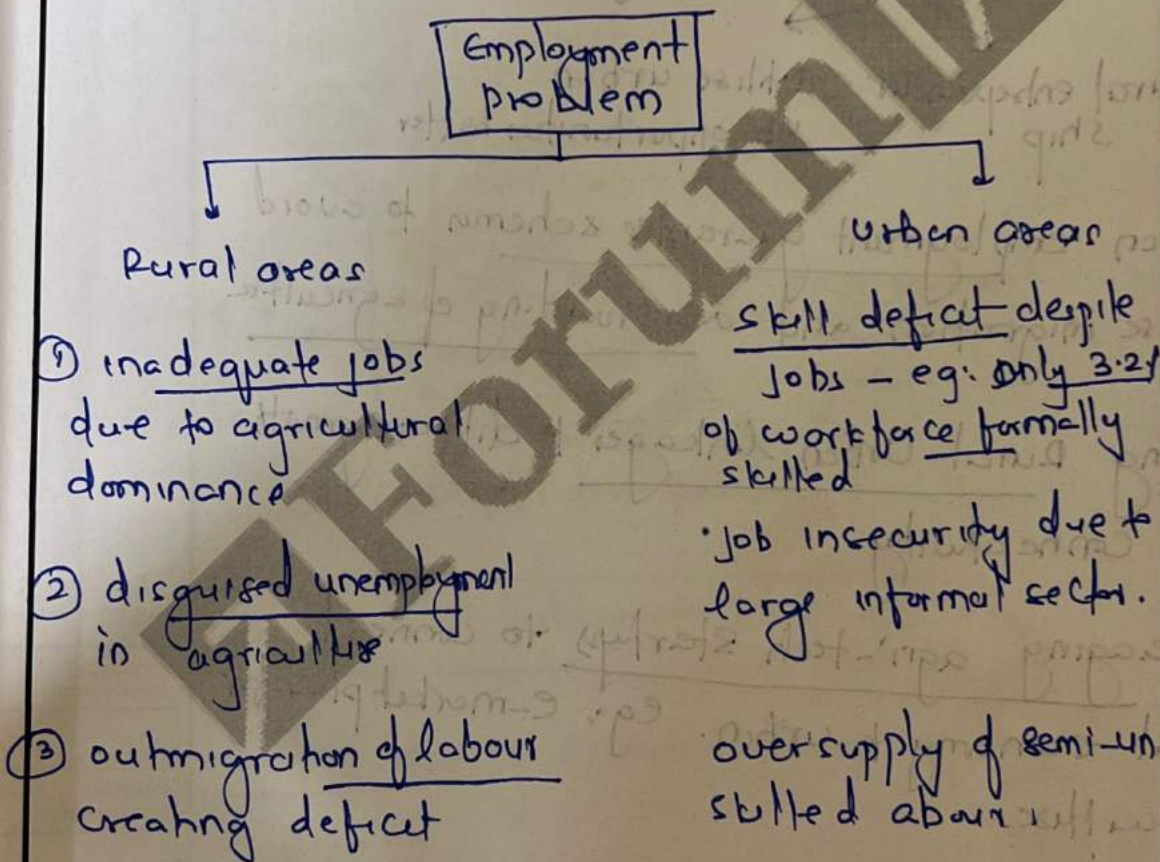 Employment
problem
Rural areas
① inadequate jobs
due to agricultural
dominance
② disguised unemployment
in agriculture
③ outmigration of labour
creating deficit
urban areas
skill deficit despite
jobs - eg: only 3.2%
of workforce formally
skilled
·job insecurity due to
large informal sector.
oversupply of semi-un
skilled abour.
ForumI